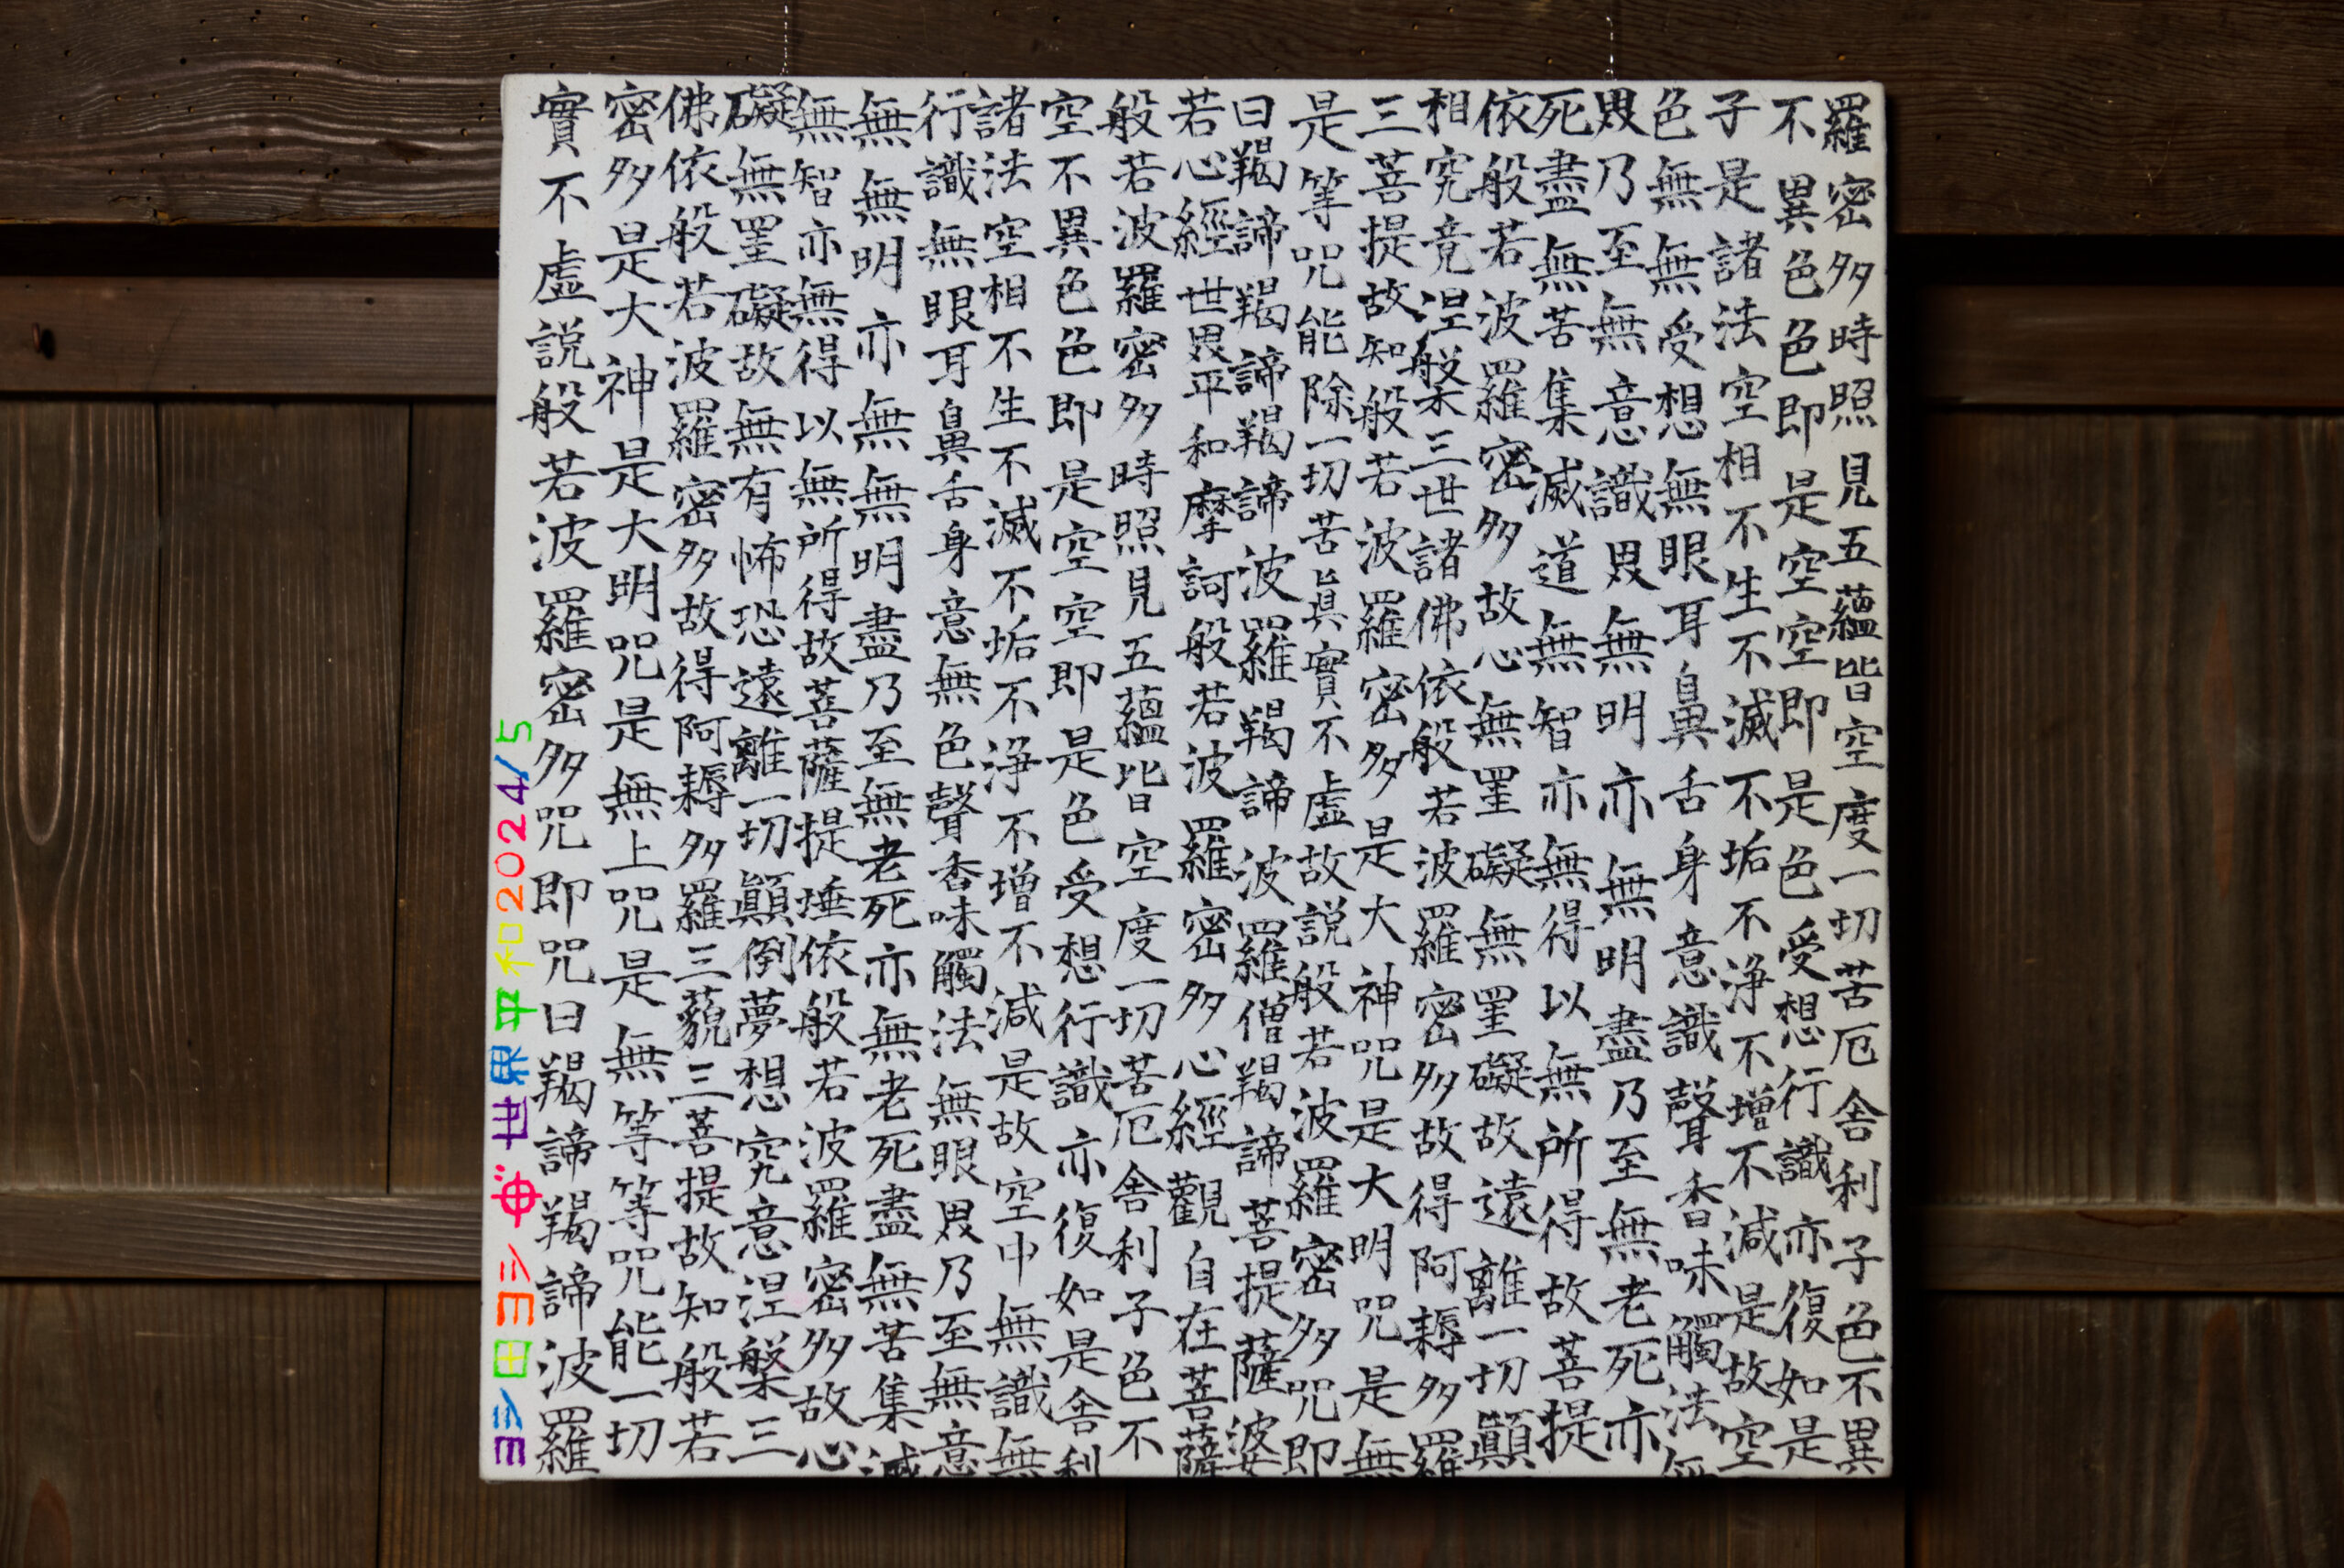 羅密多時照見五蘊皆空度一切苦厄舍利子色不異
不異色色即是空空即是色受想行識亦復如是
子是諸法空相不生不滅不垢不浄不増不減是故空
色無無受想無眼耳鼻舌身意識聲香味觸法無
界乃至無意識界無明亦無明盡乃至無老死亦
死盡無苦集滅道無智亦無得以無所得故菩提
依般若波羅密多故心無罣礙無罣礙故遠離一切顛
相究竟涅槃三世諸佛依般若波羅密多故得阿耨多羅
三菩提故知般若波羅密多是大神咒是大明咒是無
是等咒能除一切苦眞實不虚故説般若波羅密多咒即
曰羯諦羯諦羯諦波羅羯諦波羅僧羯諦菩提薩婆
若心經世界平和摩訶般若波羅密多心經觀自在菩薩
般若波羅密多時照見五蘊皆空度一切苦厄舍利子色不
空不異色色即是空空即是色受想行識亦復如是舍利
諸法空相不生不滅不垢不浄不増不減是故空中無識無
行識無眼耳鼻舌身意無色聲香味觸法無眼界乃至無意
無無明亦無無明盡乃至無老死亦無老死盡無苦集滅
無智亦無得以無所得故菩薩提埵依般若波羅密多故心
礙無罣礙故無有怖恐遠離一切顛倒夢想究意涅槃三
佛依般若波羅密多故得阿耨多羅三藐三菩提故知般若
密多是大神是大明咒是無上咒是無等等咒能一切
實不虚説般若波羅密多咒即咒曰羯諦羯諦波羅
ヨシ田ヨシ 世界平和2024/5